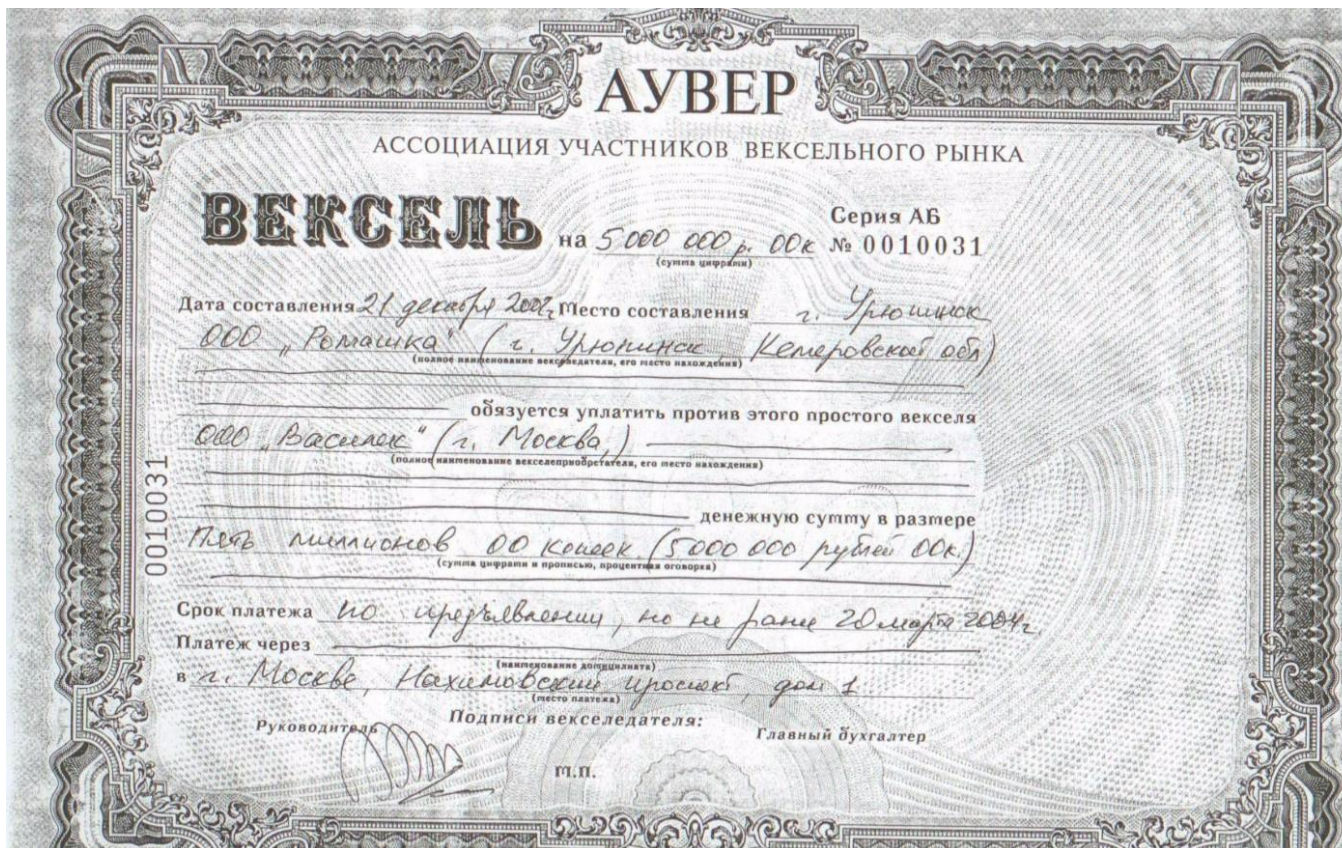 АУВЕР
АССОЦИАЦИЯ УЧАСТНИКОВ ВЕКСЕЛЬНОГО РЫНКА
ВЕКСЕЛЬ на 5 000 000 р. 00к
Серия АБ
№ 0010031
(сумма цифрами)
Дата составления 21 декабря Место составления г. Урюпинск
ООО „Ромашка" (г. Урюпинск, Кемеровской обл)
(полное наименование векселедателя, его место нахождения)
обязуется уплатить против этого простого векселя
ООО „Василек" (г. Москва,)
(полное наименование векселеприобретателя, его место нахождения)
0010031
денежную сумму в размере
Пять миллионов 00 копеек (5000 000 рублей 00к.)
(сумма цифрами и прописью, процентная оговорка)
Срок платежа по предъявлении, но не ранее 20 марта 2004г
Платеж через
(наименование домицилиата)
в г. Москве, Нахимовский проспект, дом 1
(место платежа)
Подписи векселедателя:
Руководитель
Главный бухгалтер
М.П.